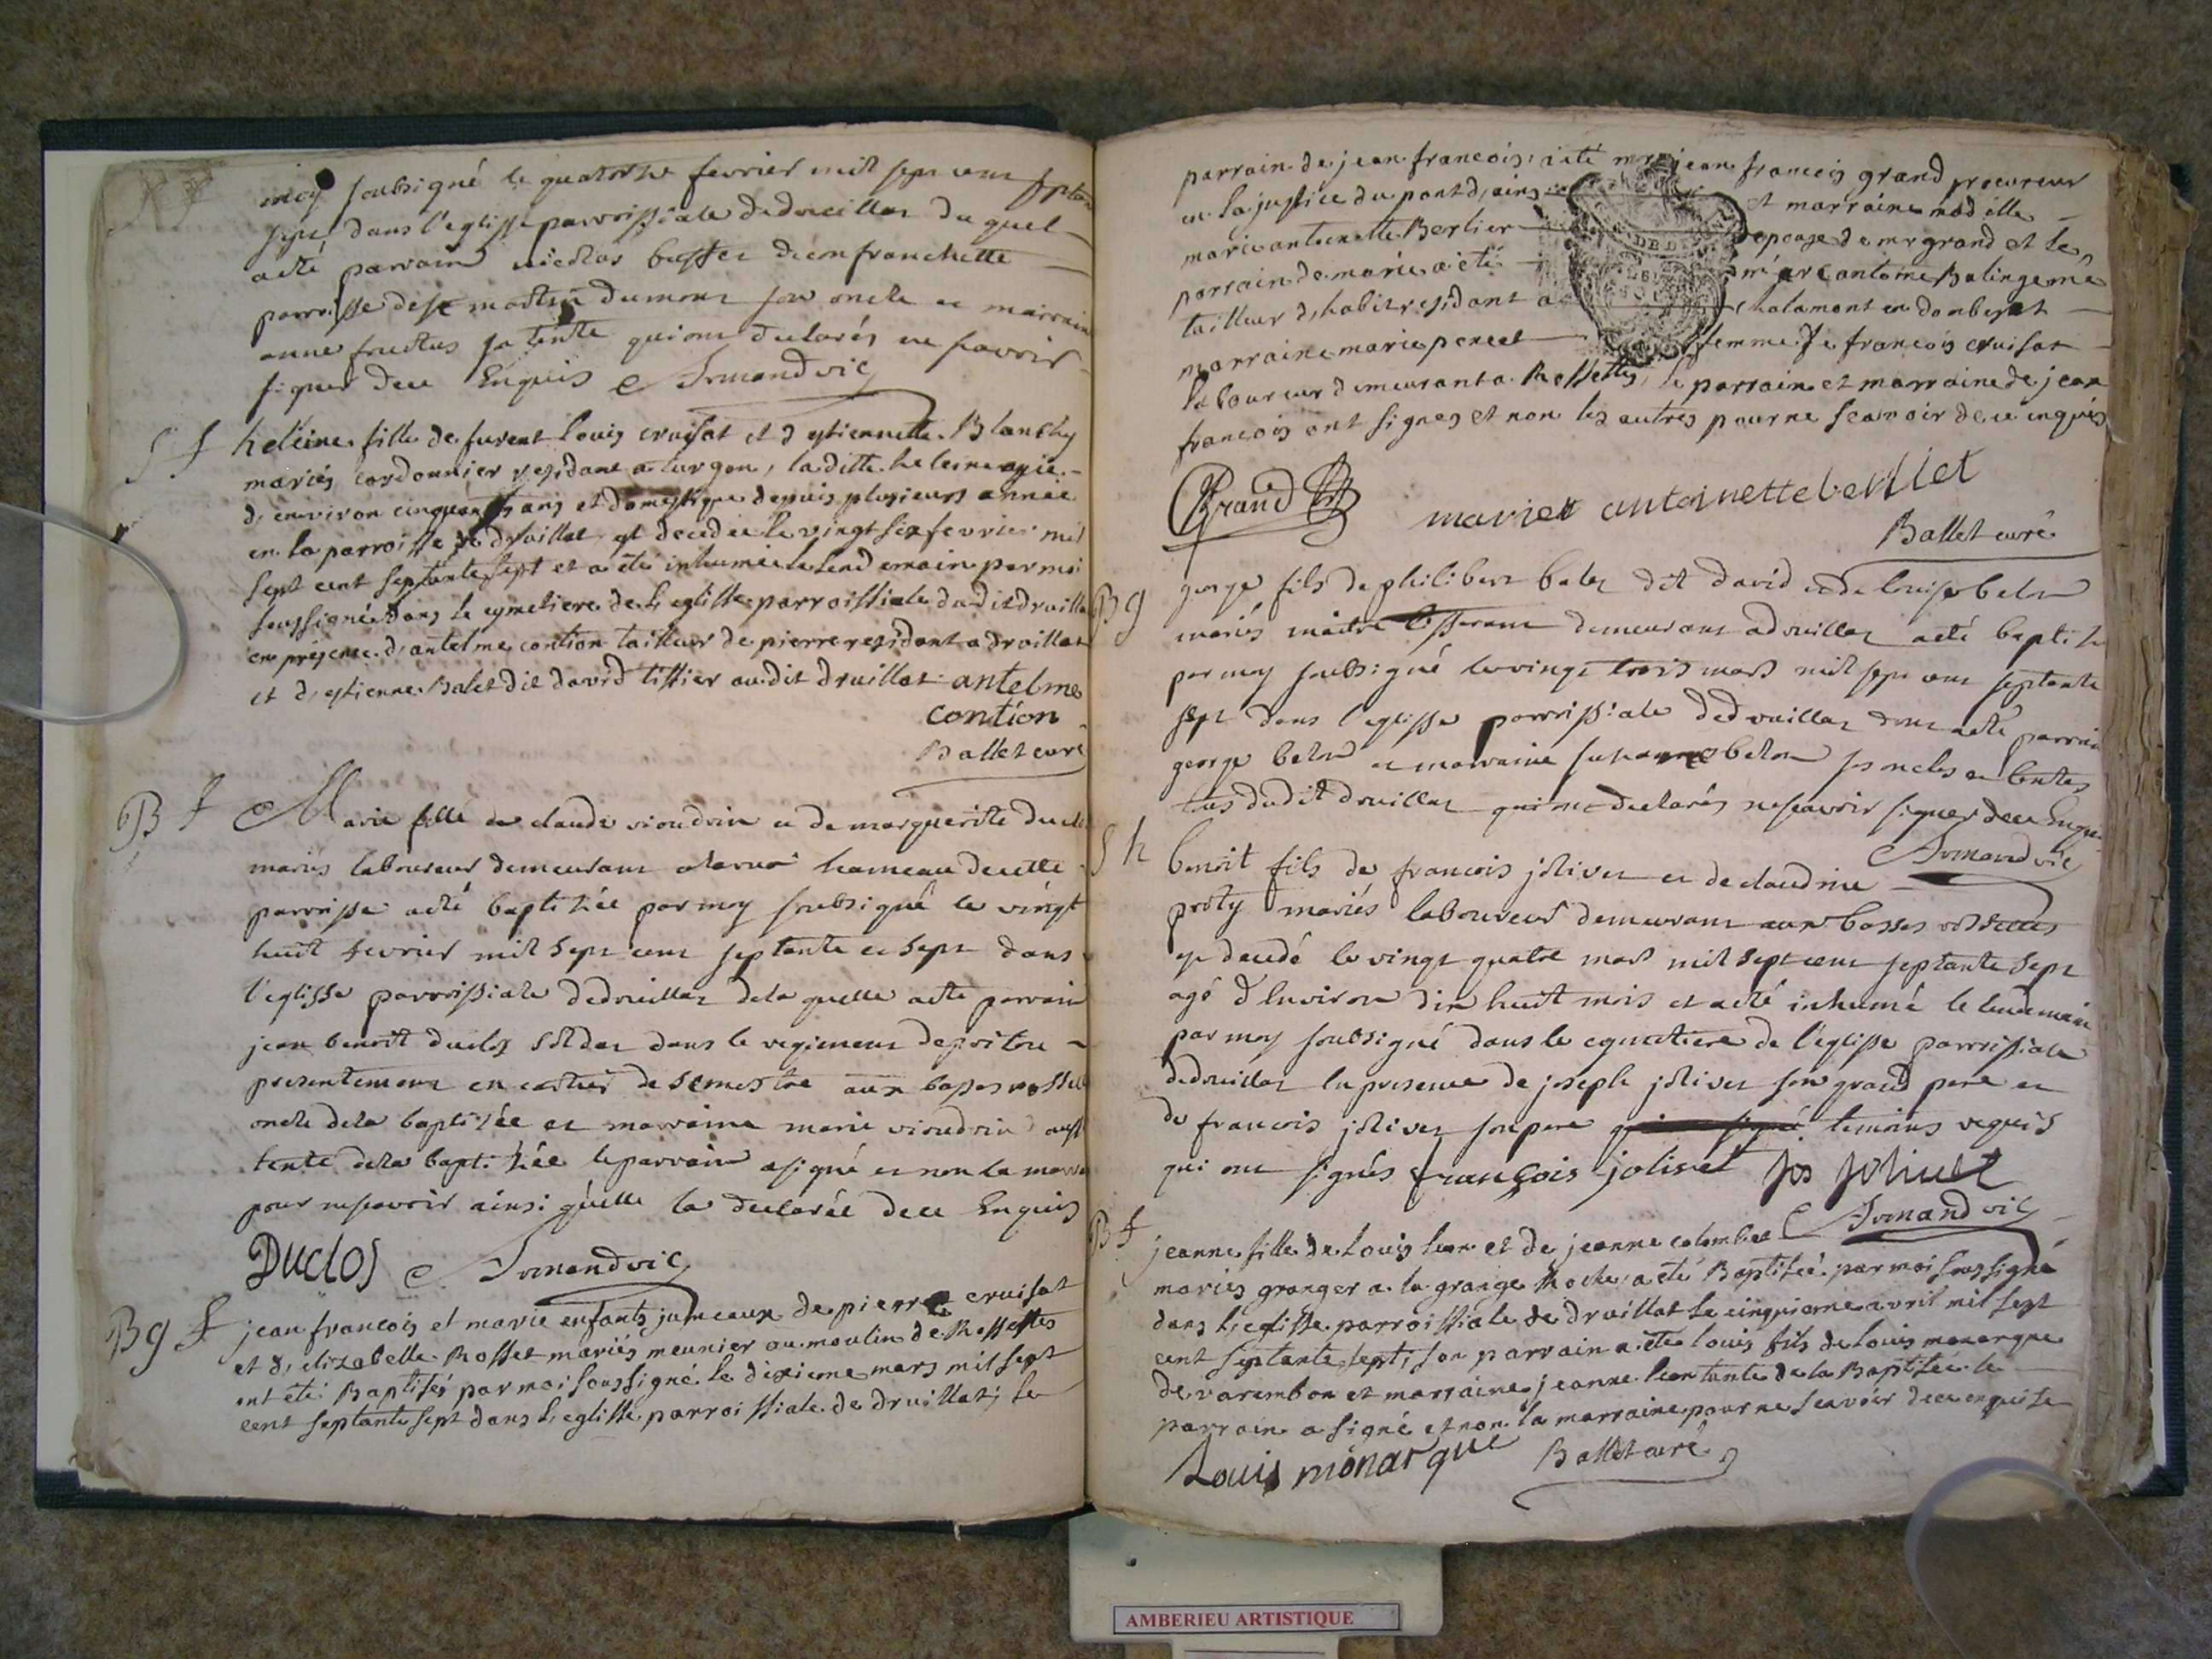 moy soubsigné le quatorse fevrier mil sept cent septante
sept dans l'eglisse parroissiale de druillas du quel
a eté parrain nicolas buffet de
parroisse de st martin dumont son oncle et marraine
anne sa tente qui ont declarés ne savoir
signer de ce Enquis Armand vic
S f
heleine fille de furent louis cruisat et d'estiennette Blanchy
mariés cordonnier residant a turgon, la ditte heleine agée
d'environ cinquante ans et domestique depuis plusieurs année
en la parroisse de druillat est decedée le vingt six fevrier mil
sept cent septante sept et a été inhumée le lendemain par moi
soussigné dans le cymetiere de l'eglisse parroissiale dudit druillat
en presence d'antelme contion tailleur de pierre residant a druillat
et d'estienne Balet dit david tissier audit druillat antelme
contion
Ballet curé
B f
Marie fille de claude vioudrin et de marguerite duclos
mariés laboureur demeurans a hameau de cette
parroisse a eté baptisée par moy soubsigné le vingt
huit fevrier mil sept cent septante et sept dans
l'eglisse parroissiale de druillas de la quelle a eté parrain
jean benoit duclos soldat dans le regiment de poitou
presentement en cartier de semestre aux basses rosset
oncle de la baptisée et marraine marie vioudrin aussi
tente de la baptisée le parrain a signé et non la marraine
pour ne sçavoir ainsi qu'elle la declarée de ce Enquis
Duclos Armand vic
B g f
jean francois et marie enfants jumeaux de pierre cruisat
et d'elizabelle Rosset mariés meunier au moulin de Rossettes
ont eté Baptisés par moi soussigné le dixieme mars mil sept
cent septante sept dans l'eglisse parroissiale de druillat; le
parrain de jean francois a eté mre jean francois grand procureur
en la justice du pont d'ains et marraine madelle
marie antoinette Berlier epouse de mr grand et le
parrain de marie a eté mr marc antoine Balinge me
tailleur d'habit residant a chalamont en dombes et
marraine marie percet femme de francois cruisat
laboureur demeurant a Rossettes, le parrain et marraine de jean
francois ont signes et non les autres pour ne scavoir de ce enquis
Grand marie antoinette berliet
Ballet curé
B g
george fils de philibert balet dit david et de louise belin
mariés maitre tisserant demeurans a druillas a eté baptisé
par moy soubsigné le vingt trois mars mil sept cent septante
sept dans l'eglisse parroissiale de druillas dont a eté parrain
george et marraine susanne ses oncles et tentes
tous dudit druillas qui ont declarés ne sçavoir signer de ce Enquis
Armand vic
S h
benoit fils de francois jolivet et de claudine
proty mariés laboureur demeurans aux basses rossettes
est decedé le vingt quatre mars mil sept cent septante sept
agé d'Environ dix huit mois et a eté inhumé le lendemain
par moy soubsigné dans le cymetiere de l'eglisse parroissiale
de druillas En presence de joseph jolivet son grand pere et
de francois jolivet son pere temoins requis
qui ont signés françois jolivet Jos Jolivet
Armand vic
B f
jeanne fille de Louis leon et de jeanne colombet
mariés granger a la grange Roche a eté Baptisée par moi soussigné
dans l'eglisse parroissiale de druillat le cinquieme avril mil sept
cent septante sept, son parrain a eté louis fils de louis monarque
de varembon et marraine jeanne leon tante de la Baptisée le
parrain a signé et non la marraine pour ne scavoir de ce enquise
Louis monarque Ballet curé
AMBERIEU ARTISTIQUE